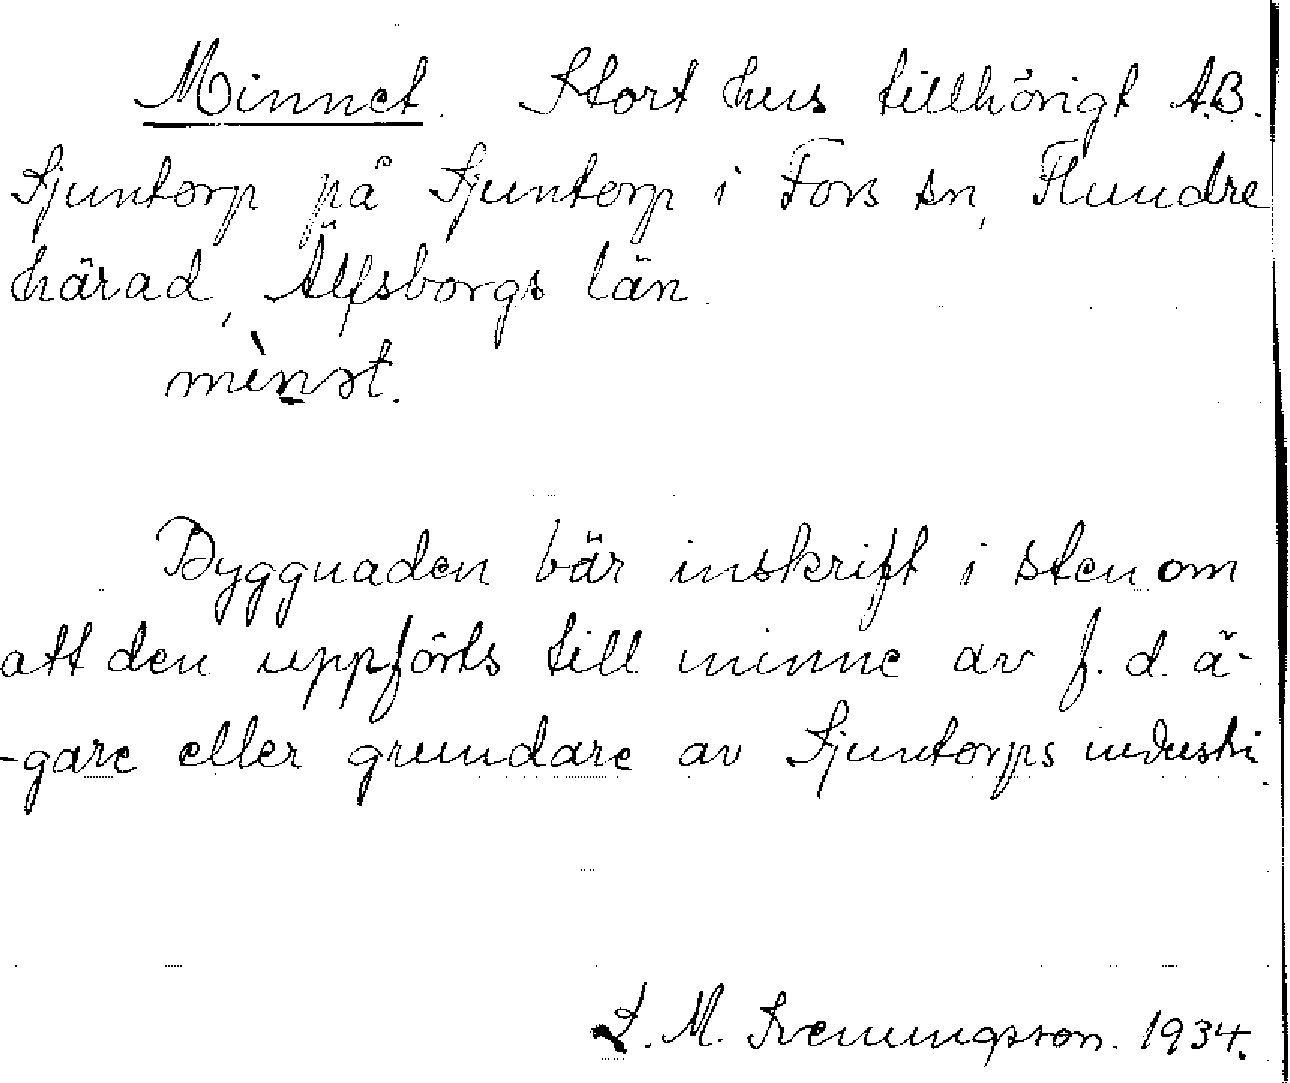 Minnet. Stort hus tillhörigt A.B.
Sjuntorp på Sjuntorp i Fors sn, Flundre
härad, Älfsborgs län.
mènst.
Byggnaden bär inskrift i sten om
att den uppförts till minne av f.d. ä-
-gare eller grundare av Sjuntorps industri.
M. 1934.